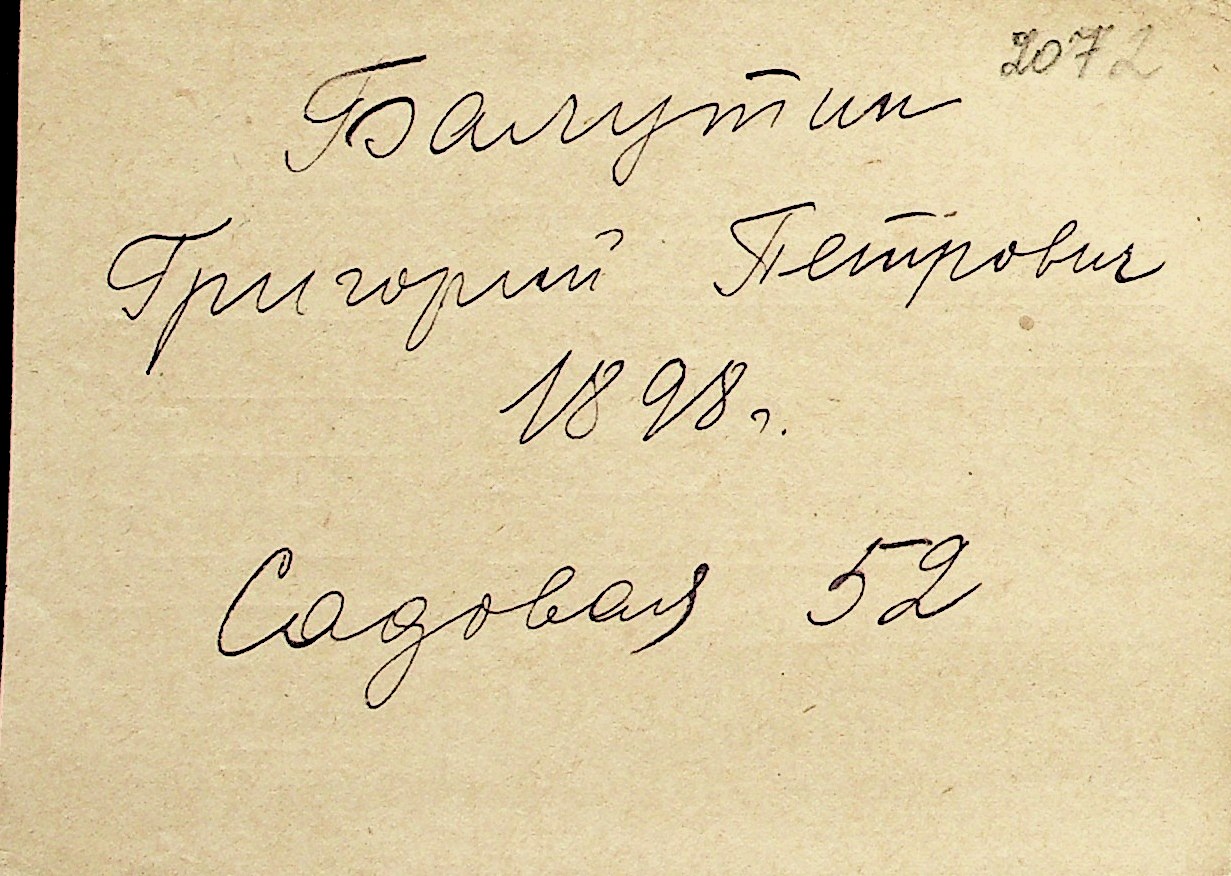 2072
Балутин
Григорий Петрович
1898 г.
Садовая 52